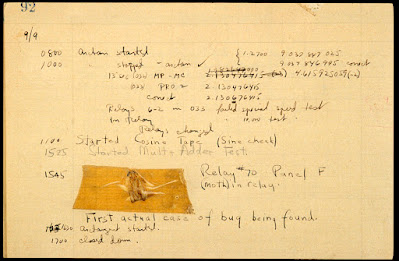 92
9/9
0800 antan started { 1.2700 9.037 847 025
1000 " stopped - antan ✓ 9.037 846 995 correct
MP - MC 4.615925059(-2)
033 PRO 2 2.130476415
correct 2.130676415
Relays 6-2 in 033 failed special speed test
in relay " 10.000 test.
Relays changed
1100 Started Cosine Tape (Sine check)
1525 Started Mult+Adder Test.
1545 Relay #70 Panel F
(moth) in relay.
First actual case of bug being found.
antangent started.
1700 closed down.